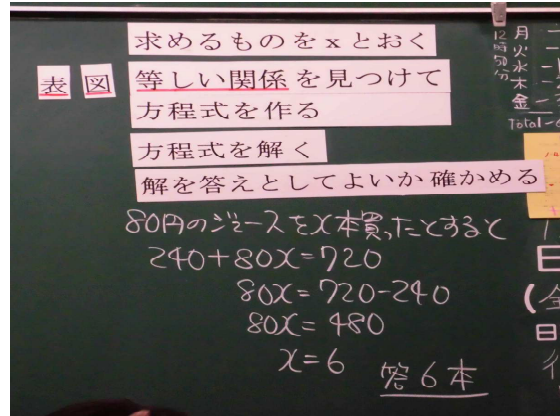 求めるものをxとおく
表 図 等しい関係を見つけて
方程式を作る
方程式を解く
解を答えとしてよいか確かめる
80円のジュースをx本買ったとすると
240+80x=720
80x=720-240
80x=480
x=6
答6本
12時50分
月
火
水
木
金
Total
日
(金
日